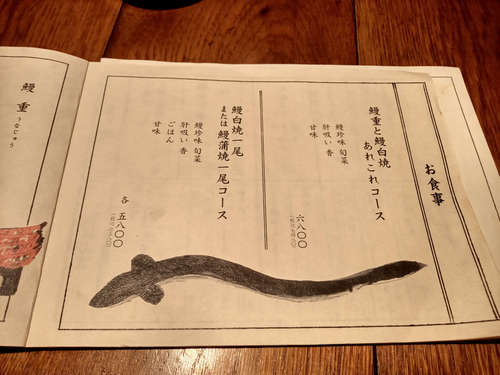 お食事
鰻重と鰻白焼
あれこれコース
鰻珍味 旬菜
肝吸い 香
甘味
六八〇〇
鰻白焼一尾
または鰻蒲焼一尾コース
鰻珍味 旬菜
肝吸い 香
ごはん
甘味
各 五八〇〇
鰻重
うなじゅう